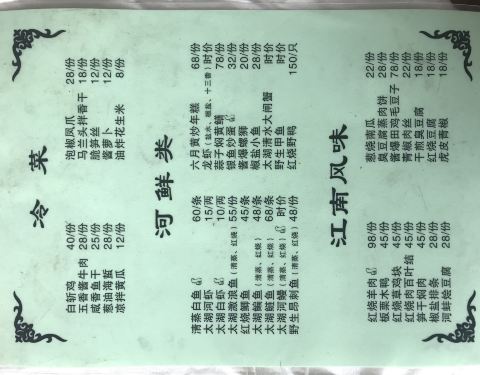 冷菜
白斩鸡 40/份
五香酱牛肉 45/份
咸香鱼干 25/份
葱油海蜇 28/份
凉拌黄瓜 12/份
泡椒凤爪 28/份
马兰头拌香干 18/份
脆笋丝 12/份
酱萝卜 12/份
油炸花生米 8/份
河鲜类
清蒸白鱼 60/条
太湖河虾 15/两
太湖白虾 10/两
太湖激浪鱼(清蒸、红烧) 55/份
红烧鳊鱼 45/条
太湖鳊鱼(清蒸、红烧) 48/条
太湖鲢鱼(清蒸、红烧) 68/条
太湖河鳗(清蒸、红烧) 时价
野生昂刺鱼(清蒸、红烧) 48/份
六月黄炒年糕 68/份
龙虾(盐水、椒盐、十三香) 时价
蒜子焖黄鳝 78/份
银鱼炒蛋 32/份
酱爆螺蛳 20/份
椒盐小鱼 28/份
太湖清水大闸蟹 时价
野生甲鱼 时价
红烧野鸭 150/只
江南风味
红烧羊肉 98/份
板栗水鸭 45/份
红烧草鸡块 45/份
红烧肉百叶结 45/份
笋干焖肉 45/份
椒盐排条 28/份
河蚌烩豆腐 28/份
葱烧南瓜 22/份
臭豆腐蒸肉饼 28/份
酱爆田鸡毛豆子 78/份
青椒肉丝 22/份
干煎臭豆腐 18/份
红烧豆腐 18/份
虎皮青椒 18/份